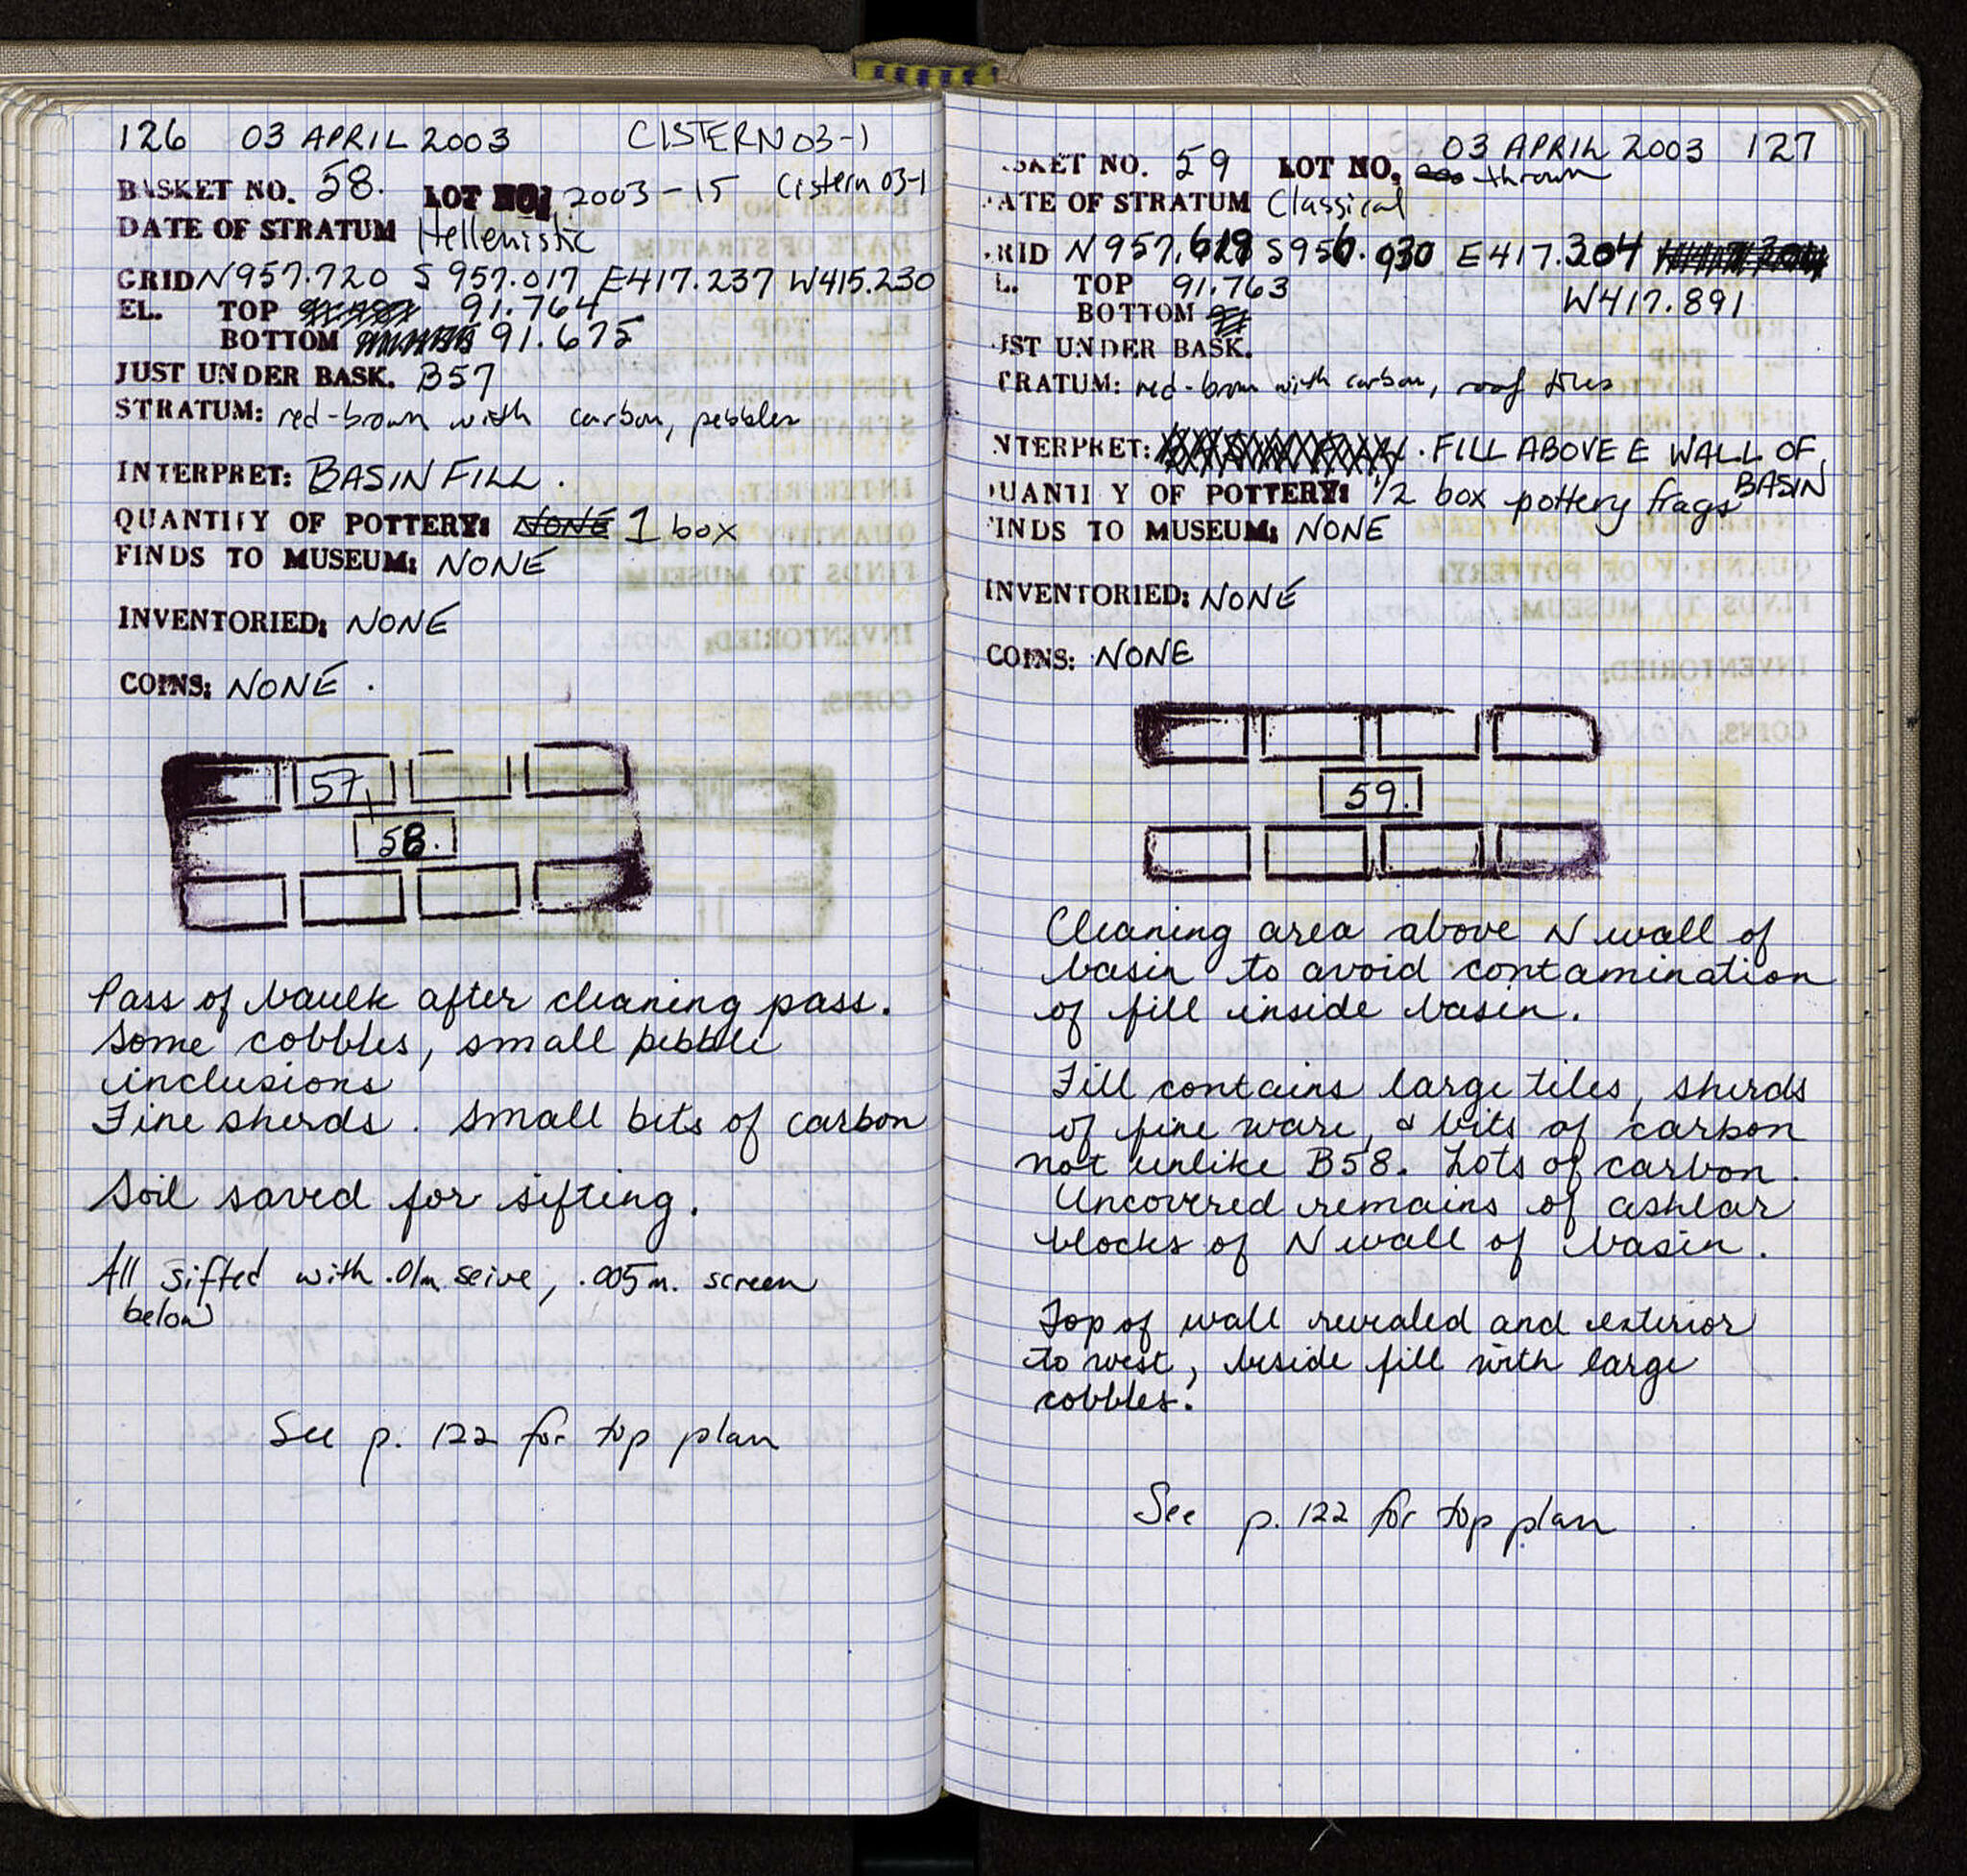 126 03 APRIL 2003 CISTERN 03-1
BASKET NO. 58. LOT NO. 2003-15 Cistern 03-1
DATE OF STRATUM Hellenistic
GRID N957.720 S 957.017 E417.237 W415.230
EL. TOP 91.764
BOTTOM 91.675
JUST UNDER BASK. B57
STRATUM: red-brown with carbon, pebbles
INTERPRET: BASIN FILL.
QUANTITY OF POTTERY: NONE 1 box
FINDS TO MUSEUM: NONE
INVENTORIED: NONE
COINS: NONE.
57
58.
Pass of baulk after cleaning pass.
Some cobbles, small pebble
inclusions
Fine sherds. Small bits of carbon
Soil saved for sifting.
All sifted with .01m seive, .005m. screen
below
See p. 122 for top plan
03 APRIL 2003 127
SKET NO. 59 LOT NO. thrown
ATE OF STRATUM Classical
RID N957.619 S956.930 E417.304
L. TOP 91.763 W417.891
BOTTOM
UST UNDER BASK.
TRATUM: red-brown with carbon, roof tiles
NTERPRET: . FILL ABOVE E WALL OF
BASIN
UANTI Y OF POTTERY: 1/2 box pottery frags
INDS TO MUSEUM: NONE
INVENTORIED: NONE
COINS: NONE
59.
Cleaning area above N wall of
basin to avoid contamination
of fill inside basin.
Fill contains large tiles, sherds
of fine ware, & bits of carbon
not unlike B58. Lots of carbon.
Uncovered remains of ashlar
blocks of N wall of basin.
Top of wall revealed and exterior
to west, beside fill with large
cobbles.
See p. 122 for top plan